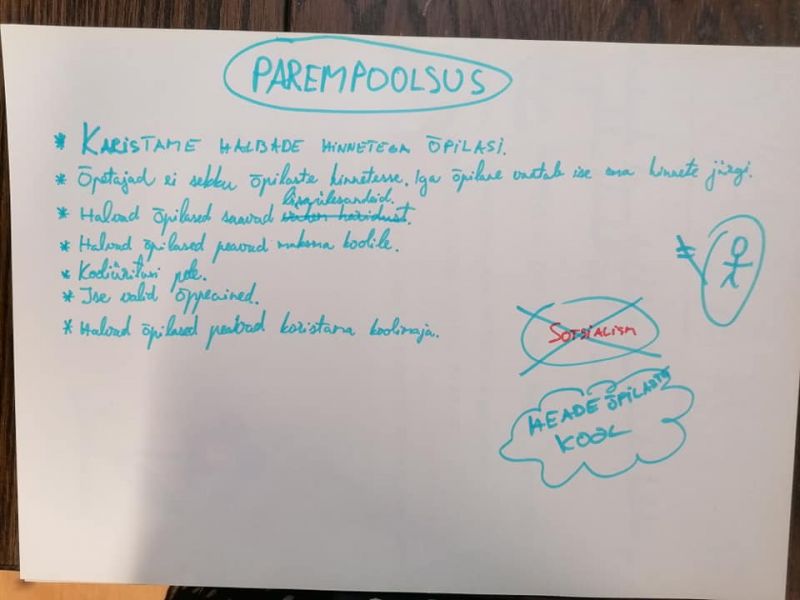 PAREMPOOLSUS
* KARISTAME HALBADE HINNETEGA ÕPILASI.
* Õpetajad ei sekku õpilaste hinnetesse. Iga õpilane vastab ise oma hinnete järgi.
lisaülesandeid.
* Halvad õpilased saavad
* Halvad õpilased peavad maksma koolile.
* Kooliüritusi pole.
* Ise valid õppeained.
* Halvad õpilased peabad koristama koolimaja.
SOTSIALISM
HEADE ÕPILASTE
KOOL